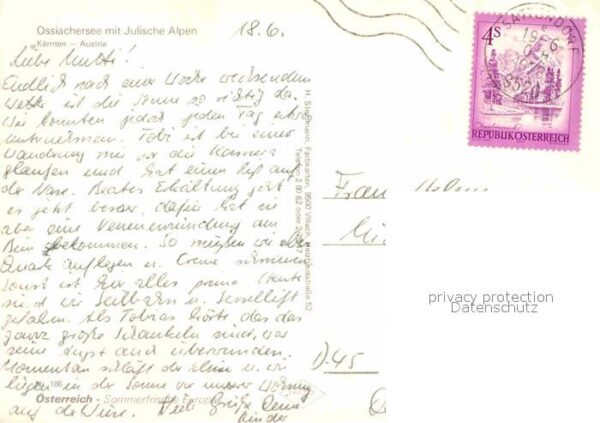 Ossiachersee mit Julische Alpen
Kärnten – Austria
18.6.
Liebe Mutti!
Endlich nach einer Woche wechselndem
Wetter ist die Sonne so richtig da.
Wir konnten jedoch jeden Tag etwas
unternehmen. Tobi ist bei einer
Wanderung mir vor die Kamera
gelaufen und hat einen Riß auf
der Nase. Beates Erkältung geht
es jetzt besser, dafür hat sie
aber eine Venenentzündung am
Bein bekommen. So müssen wir aber
Quark auflegen u. Creme schmieren
Sonst ist hier alles prima. Heute
sind wir Seilbahn u. Sessellift
gefahren. Als Tobias hörte das das
ganz große Schaukeln sind, war
seine Angst auch überwunden.
Momentan schläft der Kleine u. wir
liegen in der Sonne vor unserer Wohnung
auf der Wiese. Viele Grüße Deine
Kinder
186
Österreich - Sommerfrische Europas
9500 Villach
4S
REPUBLIK ÖSTERREICH
9520
Frau
D-45
privacy protection
Datenschutz